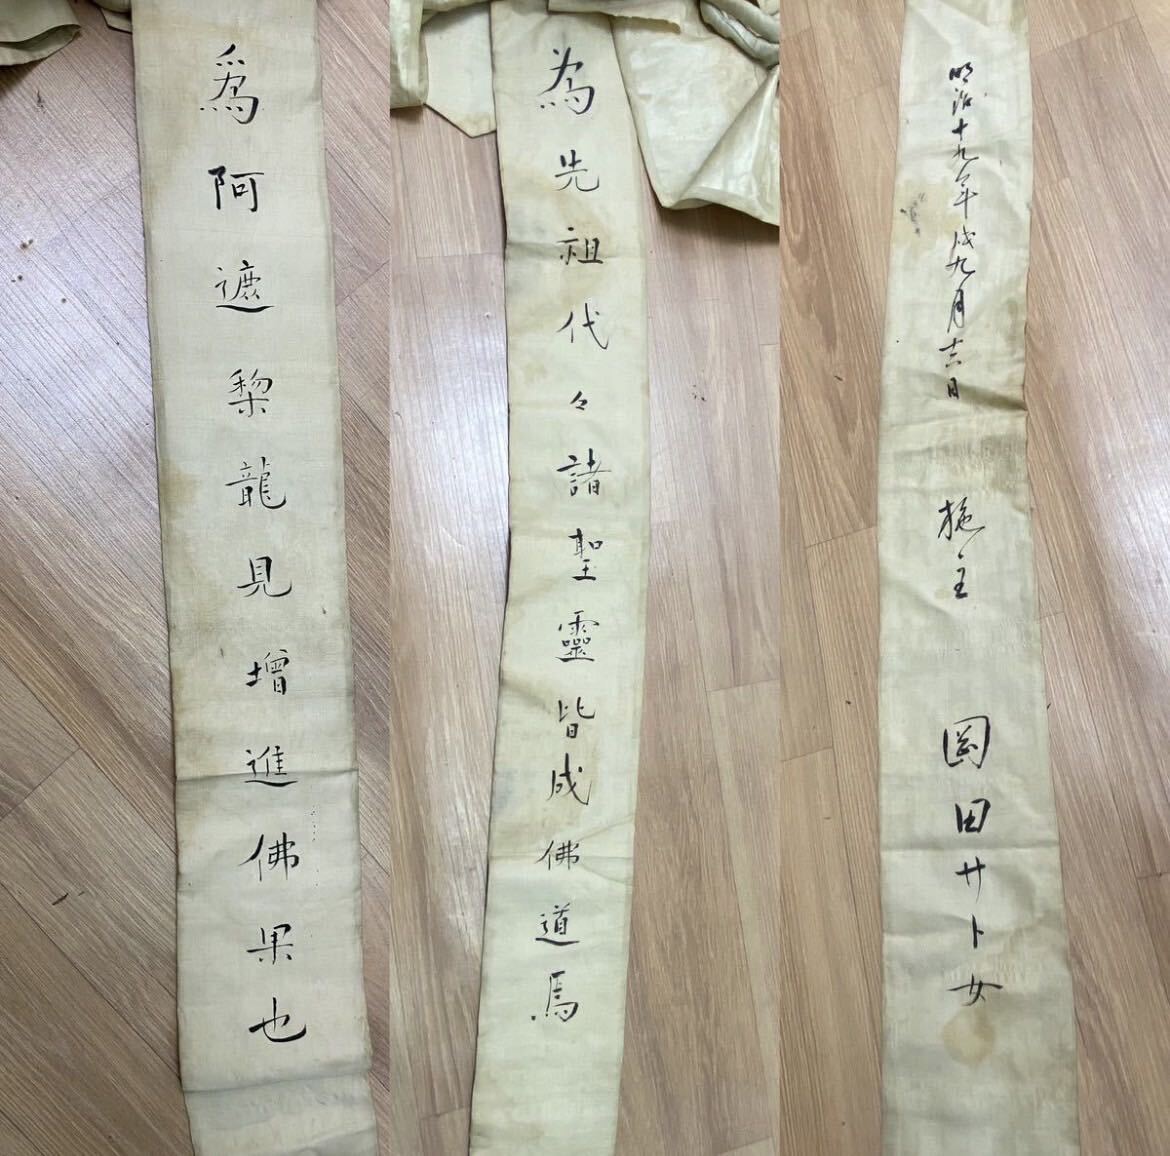 爲阿遮棃龍見增進佛果也
為先祖代々諸聖靈皆成佛道焉
明治十九年戌九月十六日 施主 岡田サト女